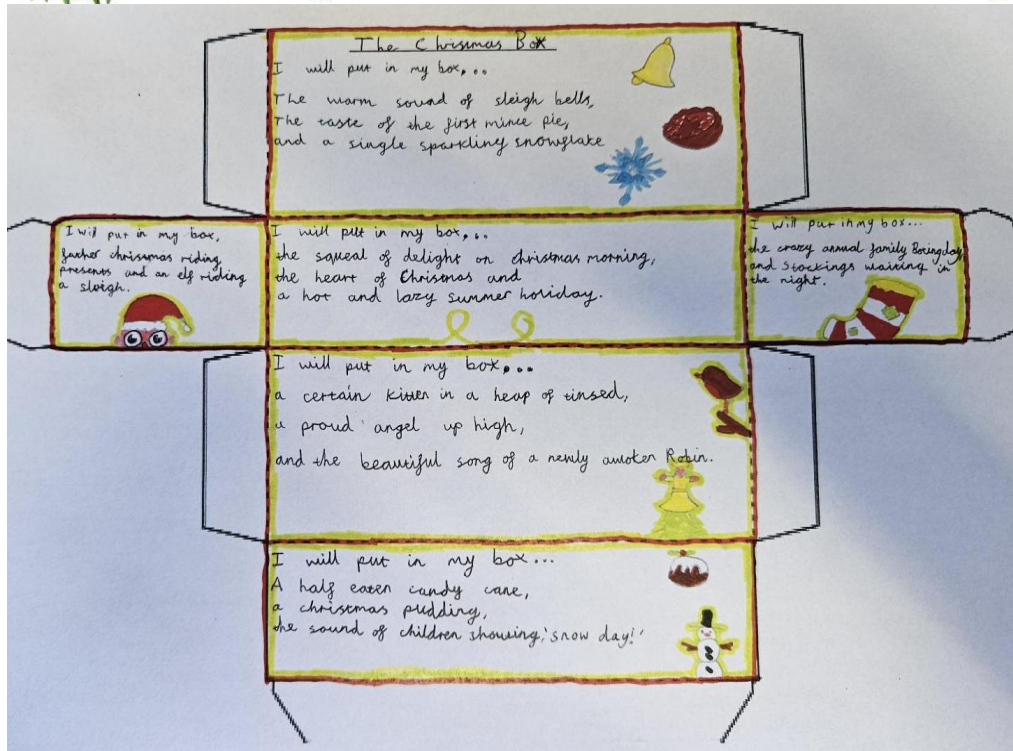 The Christmas Box
I will put in my box,...
The warm sound of sleigh bells,
The taste of the first mince pie,
and a single sparkling snowflake
I will put in my box,
father christmas riding
presents and an elf riding
a sleigh.
I will put in my box,...
the squeal of delight on christmas morning,
the heart of Christmas and
a hot and lazy summer holiday.
I will put in my box...
the crazy annual family
and stockings waiting in
the night.
I will put in my box,...
a certain kitten in a heap of tinsed,
a proud angel up high,
and the beautiful song of a newly awoken Robin.
I will put in my box...
A half eaten candy cane,
a christmas pudding,
the sound of children showing, 'snow day!'